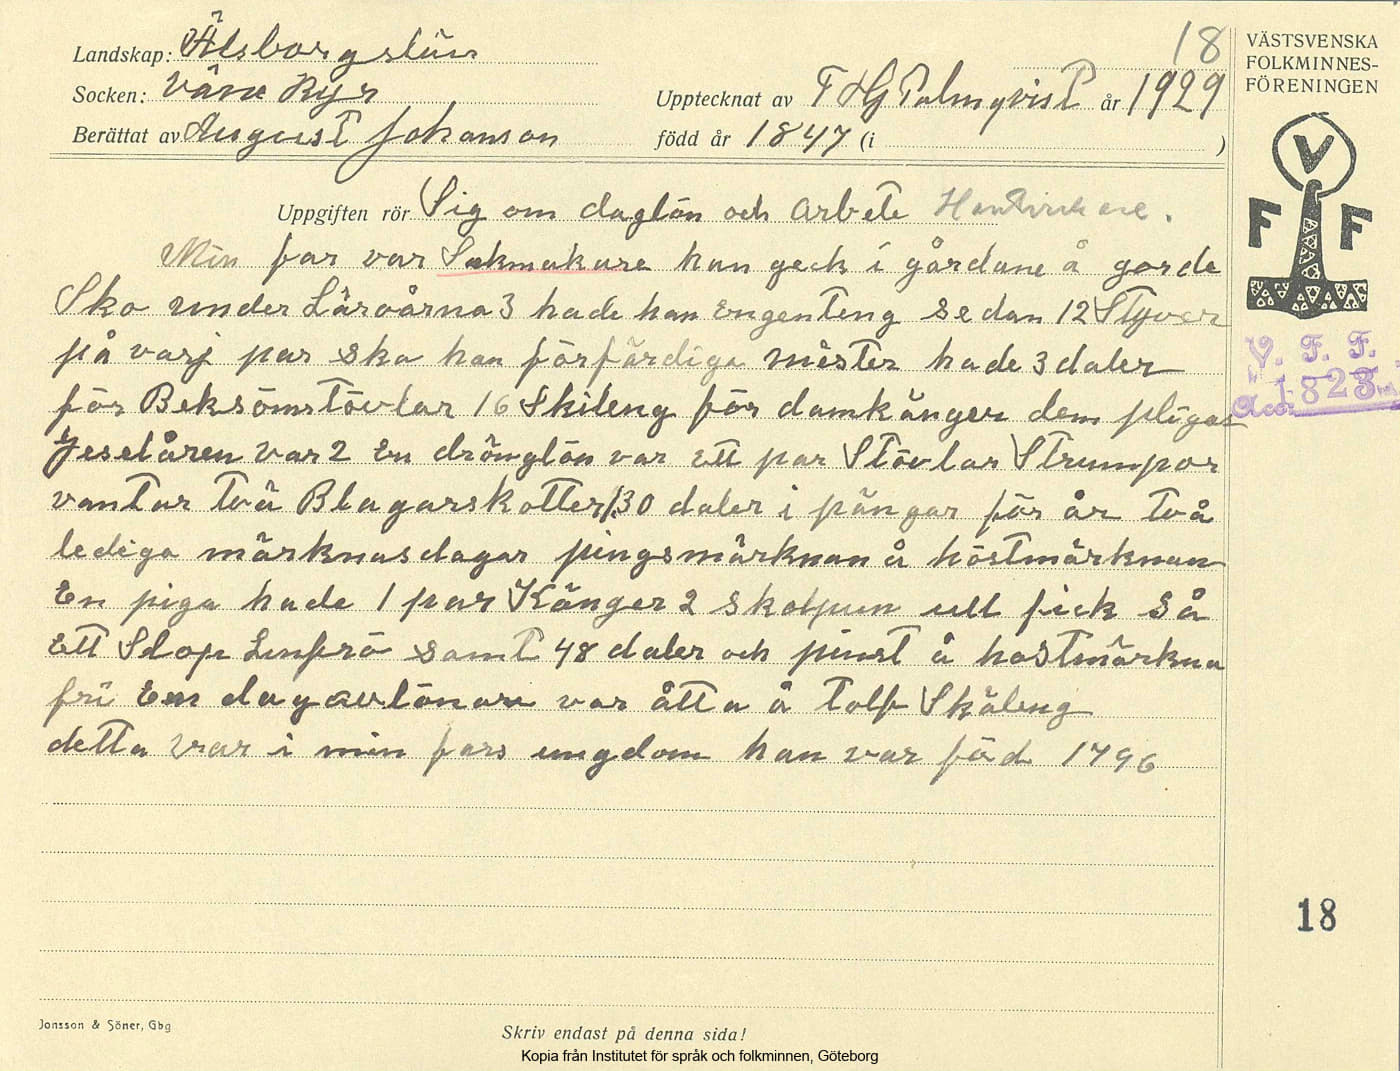 18
VÄSTSVENSKA
FOLKMINNES-
FÖRENINGEN
Landskap: Älsborgslän
Socken: Väne Ryr
Upptecknat av F Hj Palmqvist år 1929
Berättat av August Johanson
född år 1847 (i )
V
F F
Uppgiften rör Sig om daglön och arbete
Min far var Sakmakare han geck i gårdane å gorde
Sko under Läroårna 3 hade han Engenteng sedan 12 Styver
på varj par sko han förfärdiga mäster hade 3 daler
för Beksömstövlar 16 Skileng för damkänger dem pligas
Jeselåren var 2 En dränglön var ett par Stövlar Strumpor
vantar två Blagarskotter 130 daler i pängar för år två
lediga märknasdagar pingsmärknan å höstmärknan
En piga hade 1 par Känger 2 skolpun ull fick så
Ett Stop Linfrö samt 48 daler och pinst å hostmärkna
fri En dagavlönare var åtta å tolf Skäleng
detta var i min fars ungdom han var föd 1796
V. F. F.
Acc. 1823
18
Jonsson & Söner, Gbg
Skriv endast på denna sida!
Kopia från Institutet för språk och folkminnen, Göteborg